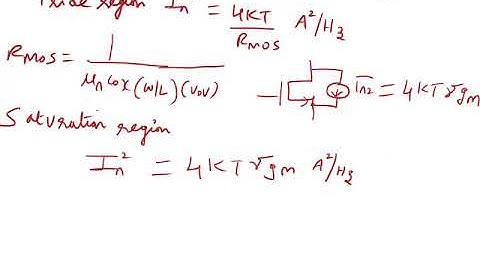 Triode region In = 4KT/RMOS A²/Hz
RMOS = 1/(μn Cox (W/L) (VOV))
In2 = 4KTγgm
Saturation region
In² = 4KTγgm A²/Hz